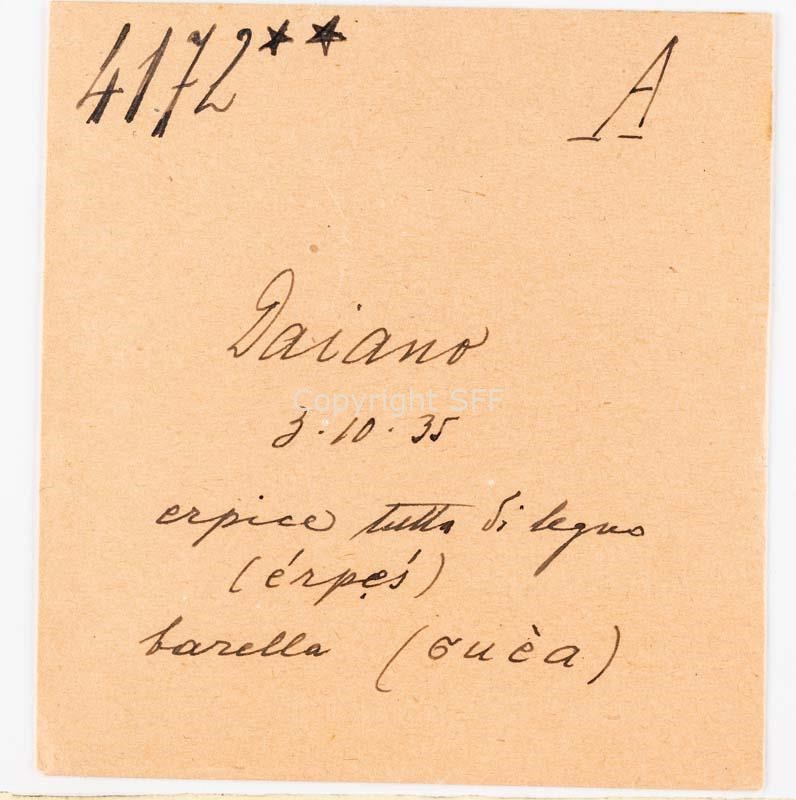 4172** A
Daiano
Copyright SFF
3·10·35
erpice tutta di legno
(érpẹś)
barella (σuèa)